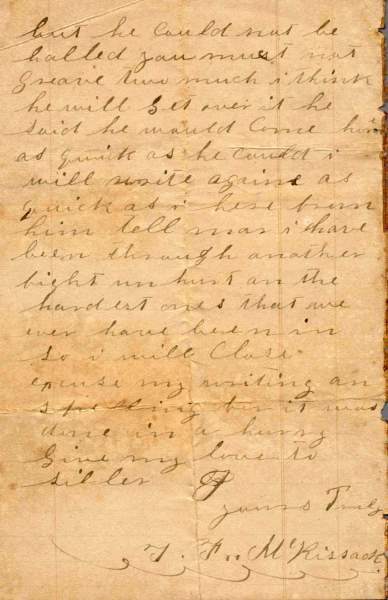 but he could not be
halled you must not
greave two much i think
he will get over it he
said he would come him
as quick as he could i
will write again as
quick as i here from
him tell mar i have
been through another
bight un hurt an the
hardest ones that we
ever have been in
so i will Close
excuse my writing an
spelling ber it was
done in a hurry
Give my love to
siller
yours Truly
T. F. McKissack